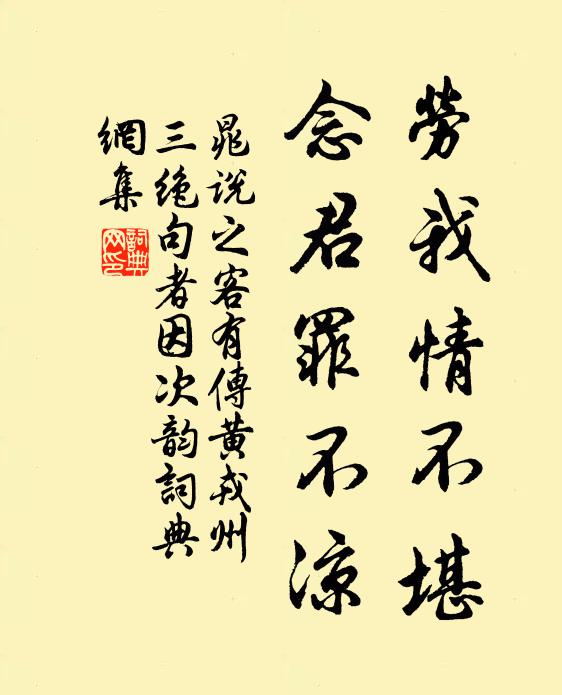 勞我情不堪
念君罪不涼
晁說之客有傳黃戎州
三絶句者因次韵詞典
網集
詞典
网印